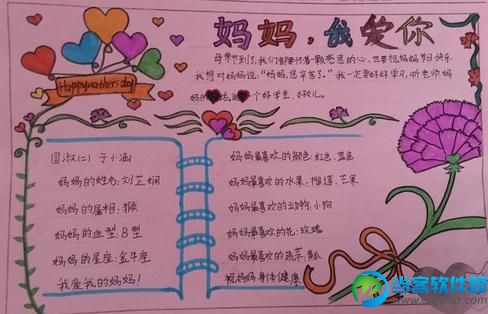 妈妈,我爱你
Happy mothers day
母亲节到了,我们都怀着一颗感恩的心,也要祝妈妈节日快乐
我想对妈妈说:“妈妈,您辛苦了。”我一定要好好学习,听老师妈
妈的话,做一个好学生、好女儿。
国淑(二) 于小涵
妈妈的姓名:刘芷娴
妈妈的属相:猴
妈妈的血型:B型
妈妈的星座:金牛座
我爱我的妈妈!
妈妈最喜欢的颜色:红色、蓝色
妈妈最喜欢的水果:榴莲、芒果
妈妈最喜欢的动物:小狗
妈妈最喜欢的花:玫瑰
妈妈最喜欢的蔬菜:黄瓜
祝妈妈身体健康
当客软件园